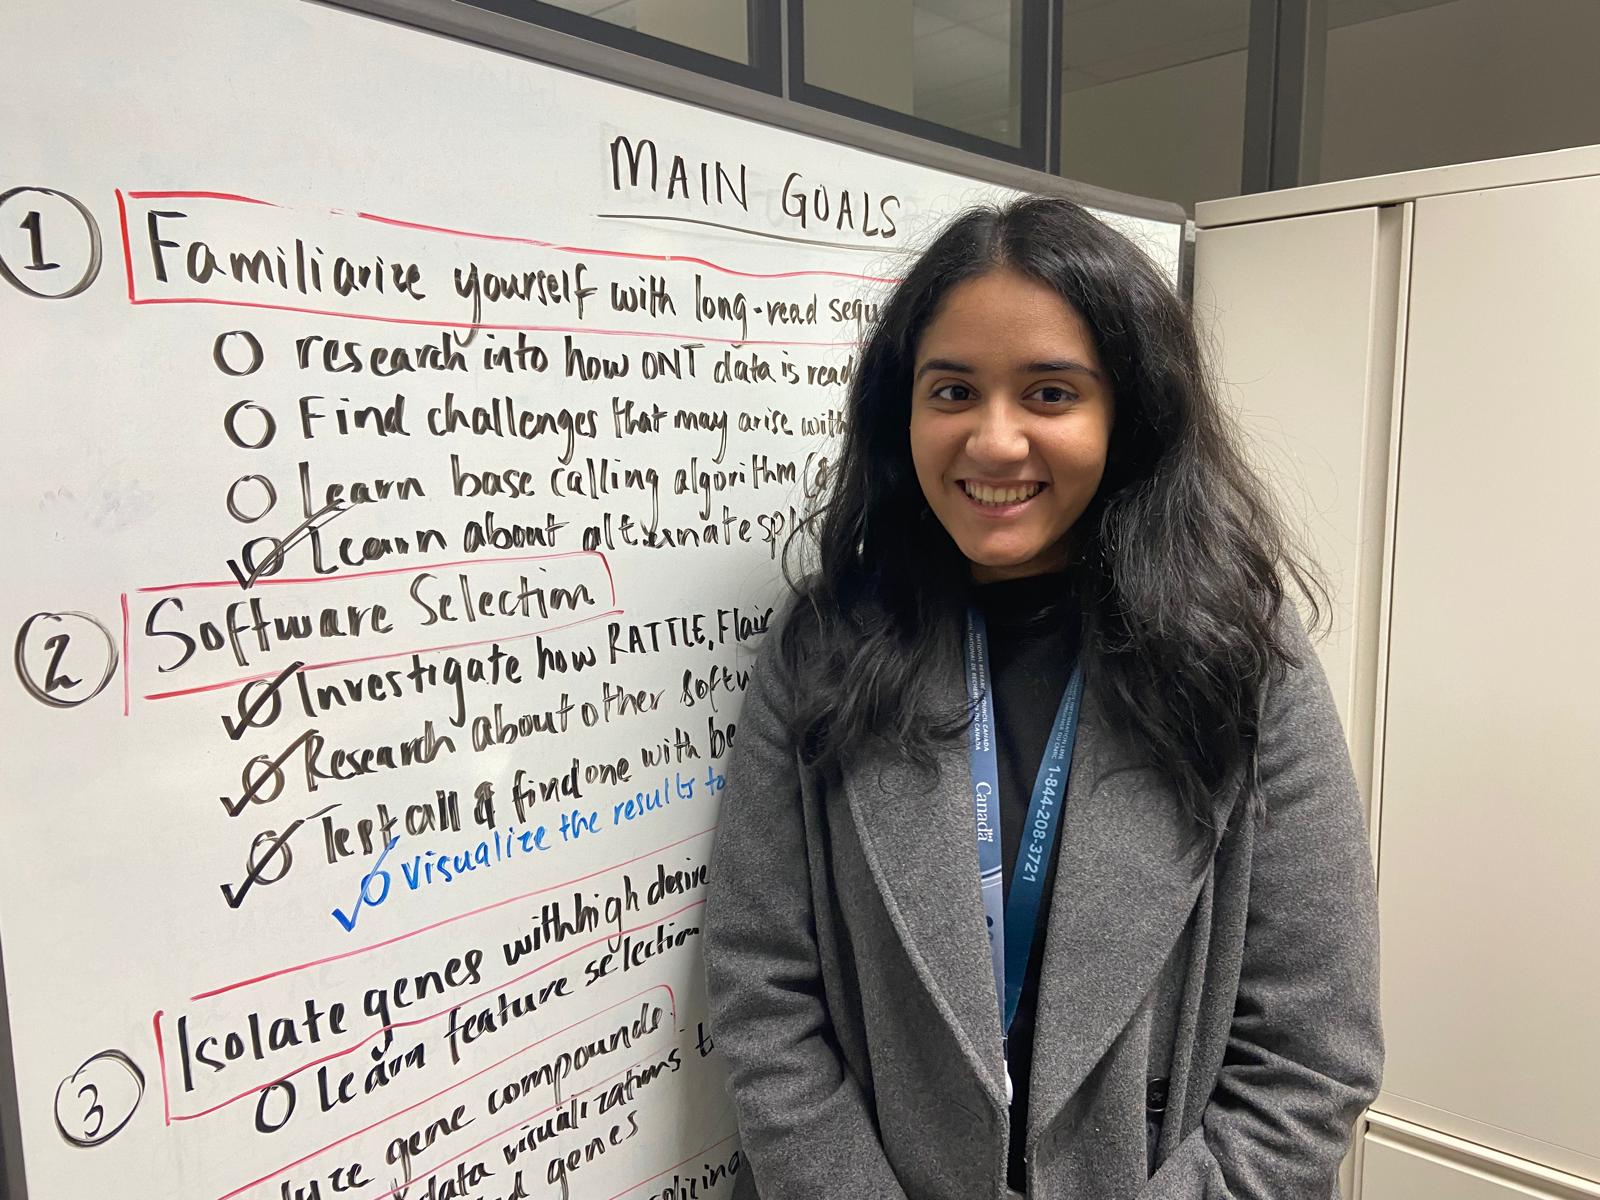 MAIN GOALS
1
Familiarize yourself with long-read sequ
O research into how ONT data is read
O Find challenges that may arise with
O Learn base calling algorithm (&
O Learn about alternate spl
2
Software Selection
O Investigate how RATTLE, Flair
O Research about other softw
O Test all & find one with be
O visualize the results to
3
Isolate genes with high desire
O learn feature selection
gene compounds
data visualizations t
genes
NATIONAL RESEARCH COUNCIL CANADA
CONSEIL NATIONAL DE RECHERCHES DU CANADA
Canada
1-844-208-3721